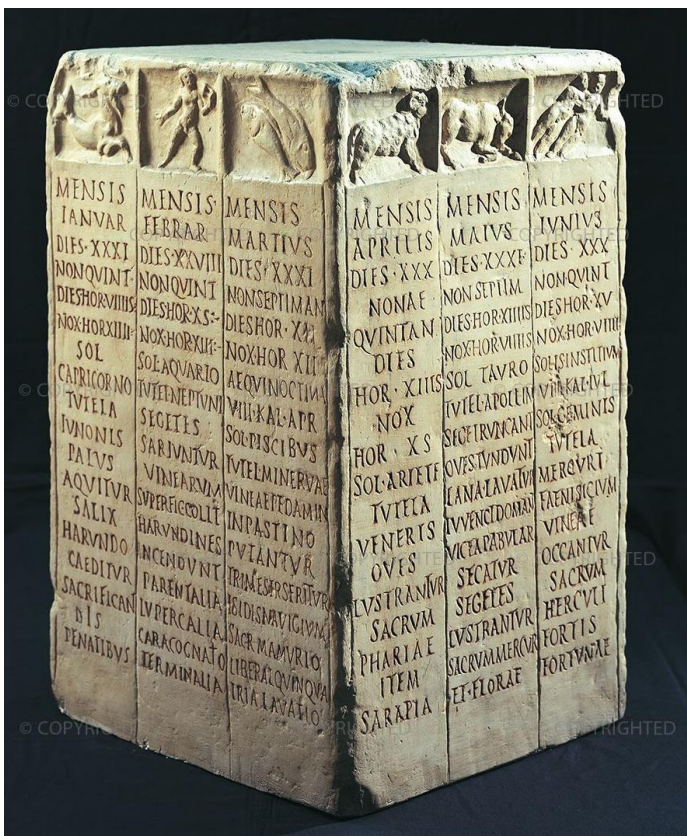 MENSIS
IANVAR
DIES·XXXI
NONQVINT
DIESHOR·VIIIIS
NOX·HORXIIII·
SOL
CAPRICORNO
TVTELA
IVNONIS
PALVS
AQVITVR
SALIX
HARVNDO
CAEDITVR
SACRIFICAN
DIS
PENATIBVS
MENSIS·
FEBRAR
DIES·XXVIII
NONQVINT
DIESHOR·XS
NOX·HOR·XIII
SOL·AQVARIO
TVTELNEPTVNI
SEGETES
SARIVNTVR
VINEARVM
SVPERFICCOLIT
HARVNDINES
INCENDVNT
PARENTALIA
LVPERCALIA
CARACOGNATO
TERMINALIA
MENSIS
MARTIVS
DIES·XXXI
NONSEPTIMAN
DIESHOR·XII
NOX·HOR XII
AEQVINOCTIVM
VIII·KAL·APR
SOL·PISCIBVS
TVTELMINERVAE
VINEAEPEDAMIN
INPASTINO
PVTANTVR
TRIMESTRSERITVR
ISIDISNAVIGIVM
SACR·MAMVRIO
LIBERAL·QVINQVA
TRIA·LAVATIO
MENSIS
APRILIS
DIES·XXX
NONAE
QVINTAN
DIES
HOR·XIIIS
NOX
HOR·XS
SOL·ARIETE
TVTELA
VENERIS
OVES
LVSTRANTVR
SACRVM
PHARIAE
ITEM
SARAPIA
MENSIS
MAIVS
DIES·XXXI
NON SEPTIM
DIESHOR·XIIIIS
NOX·HOR·VIIIIS
SOL TAVRO
TVTEL·APOLLIN
SEGETRVNCANT
OVES·TVNDVNT
LANA·LAVATVR
IVVENCI·DOMAN
VICEAPABVLAR
SECATVR
SEGETES
LVSTRANTVR
SACRVM·MERCVR
ET·FLORAE
MENSIS
IVNIVS
DIES XXX
NONQVINT
DIESHOR·XV
NOX·HOR·VIIII
SOLISINSTITIVM
VIII·KAL·IVL
SOL·GEMINIS
TVTELA
MERCVRI
FAENISICIVM
VINEAE
OCCANTVR
SACRVM
HERCVLI
FORTIS
FORTVNAE